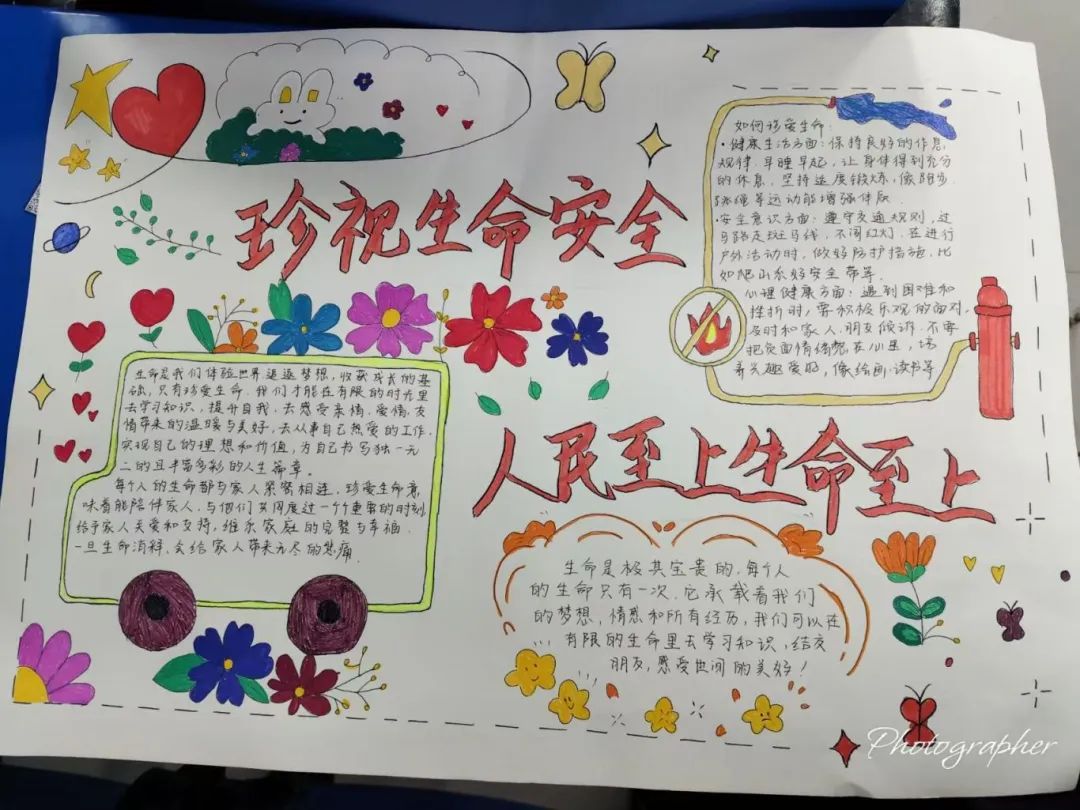 珍视生命安全
如何珍爱生命:
·健康生活方面:保持良好的作息
规律,早睡早起,让身体得到充分
的休息,坚持适度锻炼,像跑步、
跳绳等运动能增强体质
·安全意识方面:遵守交通规则,过
马路走斑马线,不闯红灯,在进行
户外活动时,做好防护措施,比
如爬山系好安全带等.
心理健康方面:遇到困难和
挫折时,要积极乐观的面对,
及时和家人、朋友倾诉.不要
把负面情绪憋在心里,培
养兴趣爱好,像绘画、读书等
生命是我们体验世界追逐梦想,收获成长的基
础,只有珍爱生命,我们才能在有限的时光里
去学习知识、提升自我,去感受亲情、爱情、友
情带来的温暖与美好,去从事自己热爱的工作,
实现自己的理想和价值,为自己书写独一无
二的且丰富多彩的人生篇章。
每个人的生命都与家人紧密相连,珍爱生命意
味着能陪伴家人,与他们共同度过一个个重要的时刻
给予家人关爱和支持,维系家庭的完整与幸福.
一旦生命消释,会给家人带来无尽的悲痛.
人民至上生命至上
生命是极其宝贵的,每个人
的生命只有一次,它承载着我们
的梦想,情感和所有经历,我们可以在
有限的生命里去学习知识,结交
朋友,感受世间的美好!
Photographer